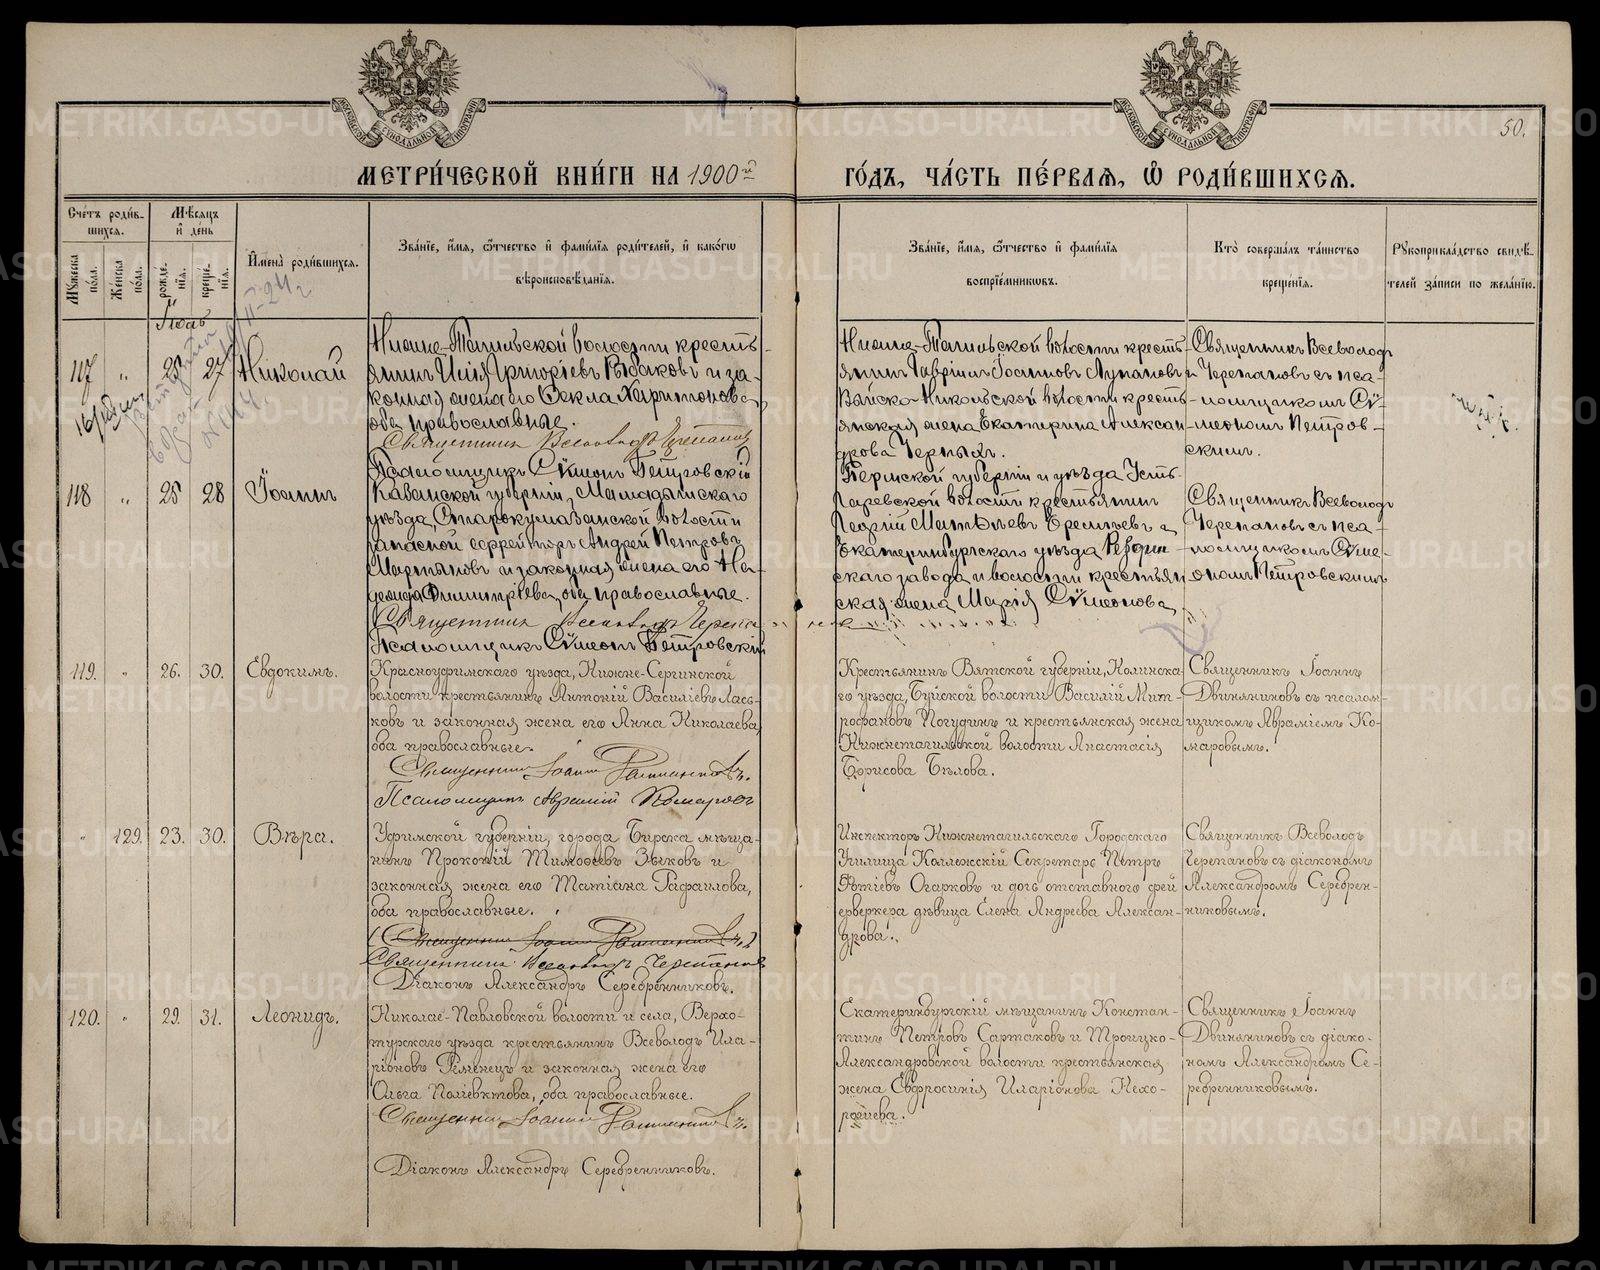 МОСКОВСКОЙ СѴНОДАЛЬНОЙ ТИПОГРАФІИ
МОСКОВСКОЙ СѴНОДАЛЬНОЙ ТИПОГРАФІИ
50.
МЕТРИ́ЧЕСКОЙ КНИ́ГИ НА 1900й
ГО́ДЪ, ЧА́СТЬ ПЕ́РВАЯ, Ѡ҆ РОДИ́ВШИХСЯ.
Сче́тъ роди́в-
шихся.
Мꙋ́жеска пола̀.
Же́нска пола̀.
Мѣ́сяцъ и҆ де́нь
рожде́-
нїя.
креще́-
нїя.
И҆мена̀ роди́вшихся.
Зва́нїе, и҆́мя, ѻ҆́тчество и҆ фами́лїя роди́телей, и҆ како́гѡ
вѣроисповѣ́данїя.
Зва́нїе, и҆́мя, ѻ҆́тчество и҆ фами́лїя
воспрїе́мникѡвъ.
Кто̀ соверша́лъ та́инство
креще́нїя.
Рꙋкоприкла́дство свидѣ́-
телей за́писи по жела́нїю.
Іюль
117 „ 25 27 Николай
Нижне-Тагильской волости кресть-
янинъ Илія Григоріевъ Рыбаковъ и за-
конная жена его Ѳекла Харитонова,
оба православные.
Священникъ Всеволодъ Черепановъ
Псаломщикъ Сѵмеонъ Петровскій
Нижне-Тагильской волости кресть-
янинъ Гавріилъ Іоанновъ Лупановъ и
Выйско-Никольской волости кресть-
янская жена Екатерина Алексан-
дрова Черныхъ.
Священникъ Всеволодъ
Черепановъ съ пса-
ломщикомъ Сѵ-
меономъ Петров-
скимъ.
118 „ 25 28 Іоаннъ
Казанской губерніи, Мамадышскаго
уѣзда, Старокумазанской волости
запасной ефрейторъ Андрей Петровъ
Мартыновъ и законная жена его На-
дежда Димитріева, оба православные.
Священникъ Всеволодъ Черепановъ
Псаломщикъ Сѵмеонъ Петровскій
Пермской губерніи и уѣзда Усть-
Гаревской волости крестьянинъ
Георгій Матѳѣевъ Еремѣевъ и
Екатеринбургскаго уѣзда Ревдин-
скаго завода и волости крестьян-
ская жена Марія Сѵмеонова
Священникъ Всеволодъ
Черепановъ съ пса-
ломщикомъ Сѵме-
ономъ Петровскимъ
119. „ 26. 30. Евдокимъ.
Красноуфимскаго уѣзда, Нижне-Сергинской
волости крестьянинъ Антоній Василіевъ Лась-
ковъ и законная жена его Анна Николаева,
оба православные.
Священникъ Іоаннъ
Псаломщикъ Аврамій Комаровъ
Крестьянинъ Вятской губерніи, Колинска-
го уѣзда, Буйской волости Василій Мит-
рофановъ Погудинъ и крестьянская жена
Нижнетагильской волости Анастасія
Борисова Бѣлова.
Священникъ Іоаннъ
Двиняниновъ съ псалом-
щикомъ Авраміемъ Ко-
маровымъ.
„ 129. 23. 30. Вѣра.
Уфимской губерніи, города Бирска мѣща-
нинъ Прокопій Тимоѳеевъ Зыковъ и
законная жена его Татіана Рафаилова,
оба православные.
Священникъ Всеволодъ Черепановъ
Діаконъ Александръ Серебренниковъ.
Инспекторъ Нижнетагильскаго Городскаго
Училища Коллежскій Секретарь Петръ
Фотіевъ Огарковъ и дочь отставного фей-
ерверкера дѣвица Елена Андреева Алексан-
дрова.
Священникъ Всеволодъ
Черепановъ съ діакономъ
Александромъ Серебрен-
никовымъ.
120. „ 29. 31. Леонидъ.
Николае-Павловской волости и села, Верхо-
турскаго уѣзда крестьянинъ Всеволодъ Ила-
ріоновъ Ременецъ и законная жена его
Ольга Поліевктова, оба православные.
Священникъ Іоаннъ
Діаконъ Александръ Серебренниковъ.
Екатеринбургскій мѣщанинъ Констан-
тинъ Петровъ Сартаковъ и Троицко-
Александровской волости крестьянская
жена Евфросинія Иларіонова Нехо-
рошева.
Священникъ Іоаннъ
Двиняниновъ съ діако-
номъ Александромъ Се-
ребренниковымъ.
METRIKI.GASO-URAL.RU